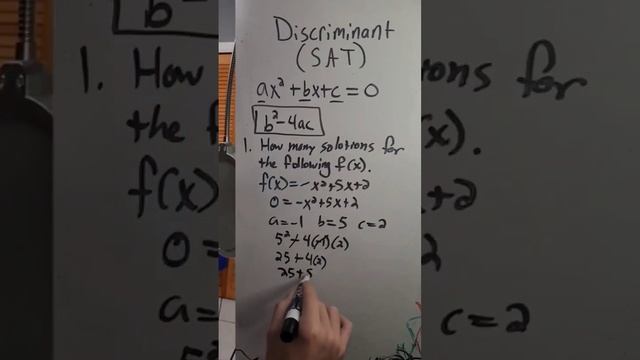 Discriminant
(SAT)
ax²+bx+c=0
b²-4ac
1. How many solutions for
the following f(x).
f(x)=-x²+5x+2
0=-x²+5x+2
a=-1 b=5 c=2
5²-4(-1)(2)
25+4(2)
25+